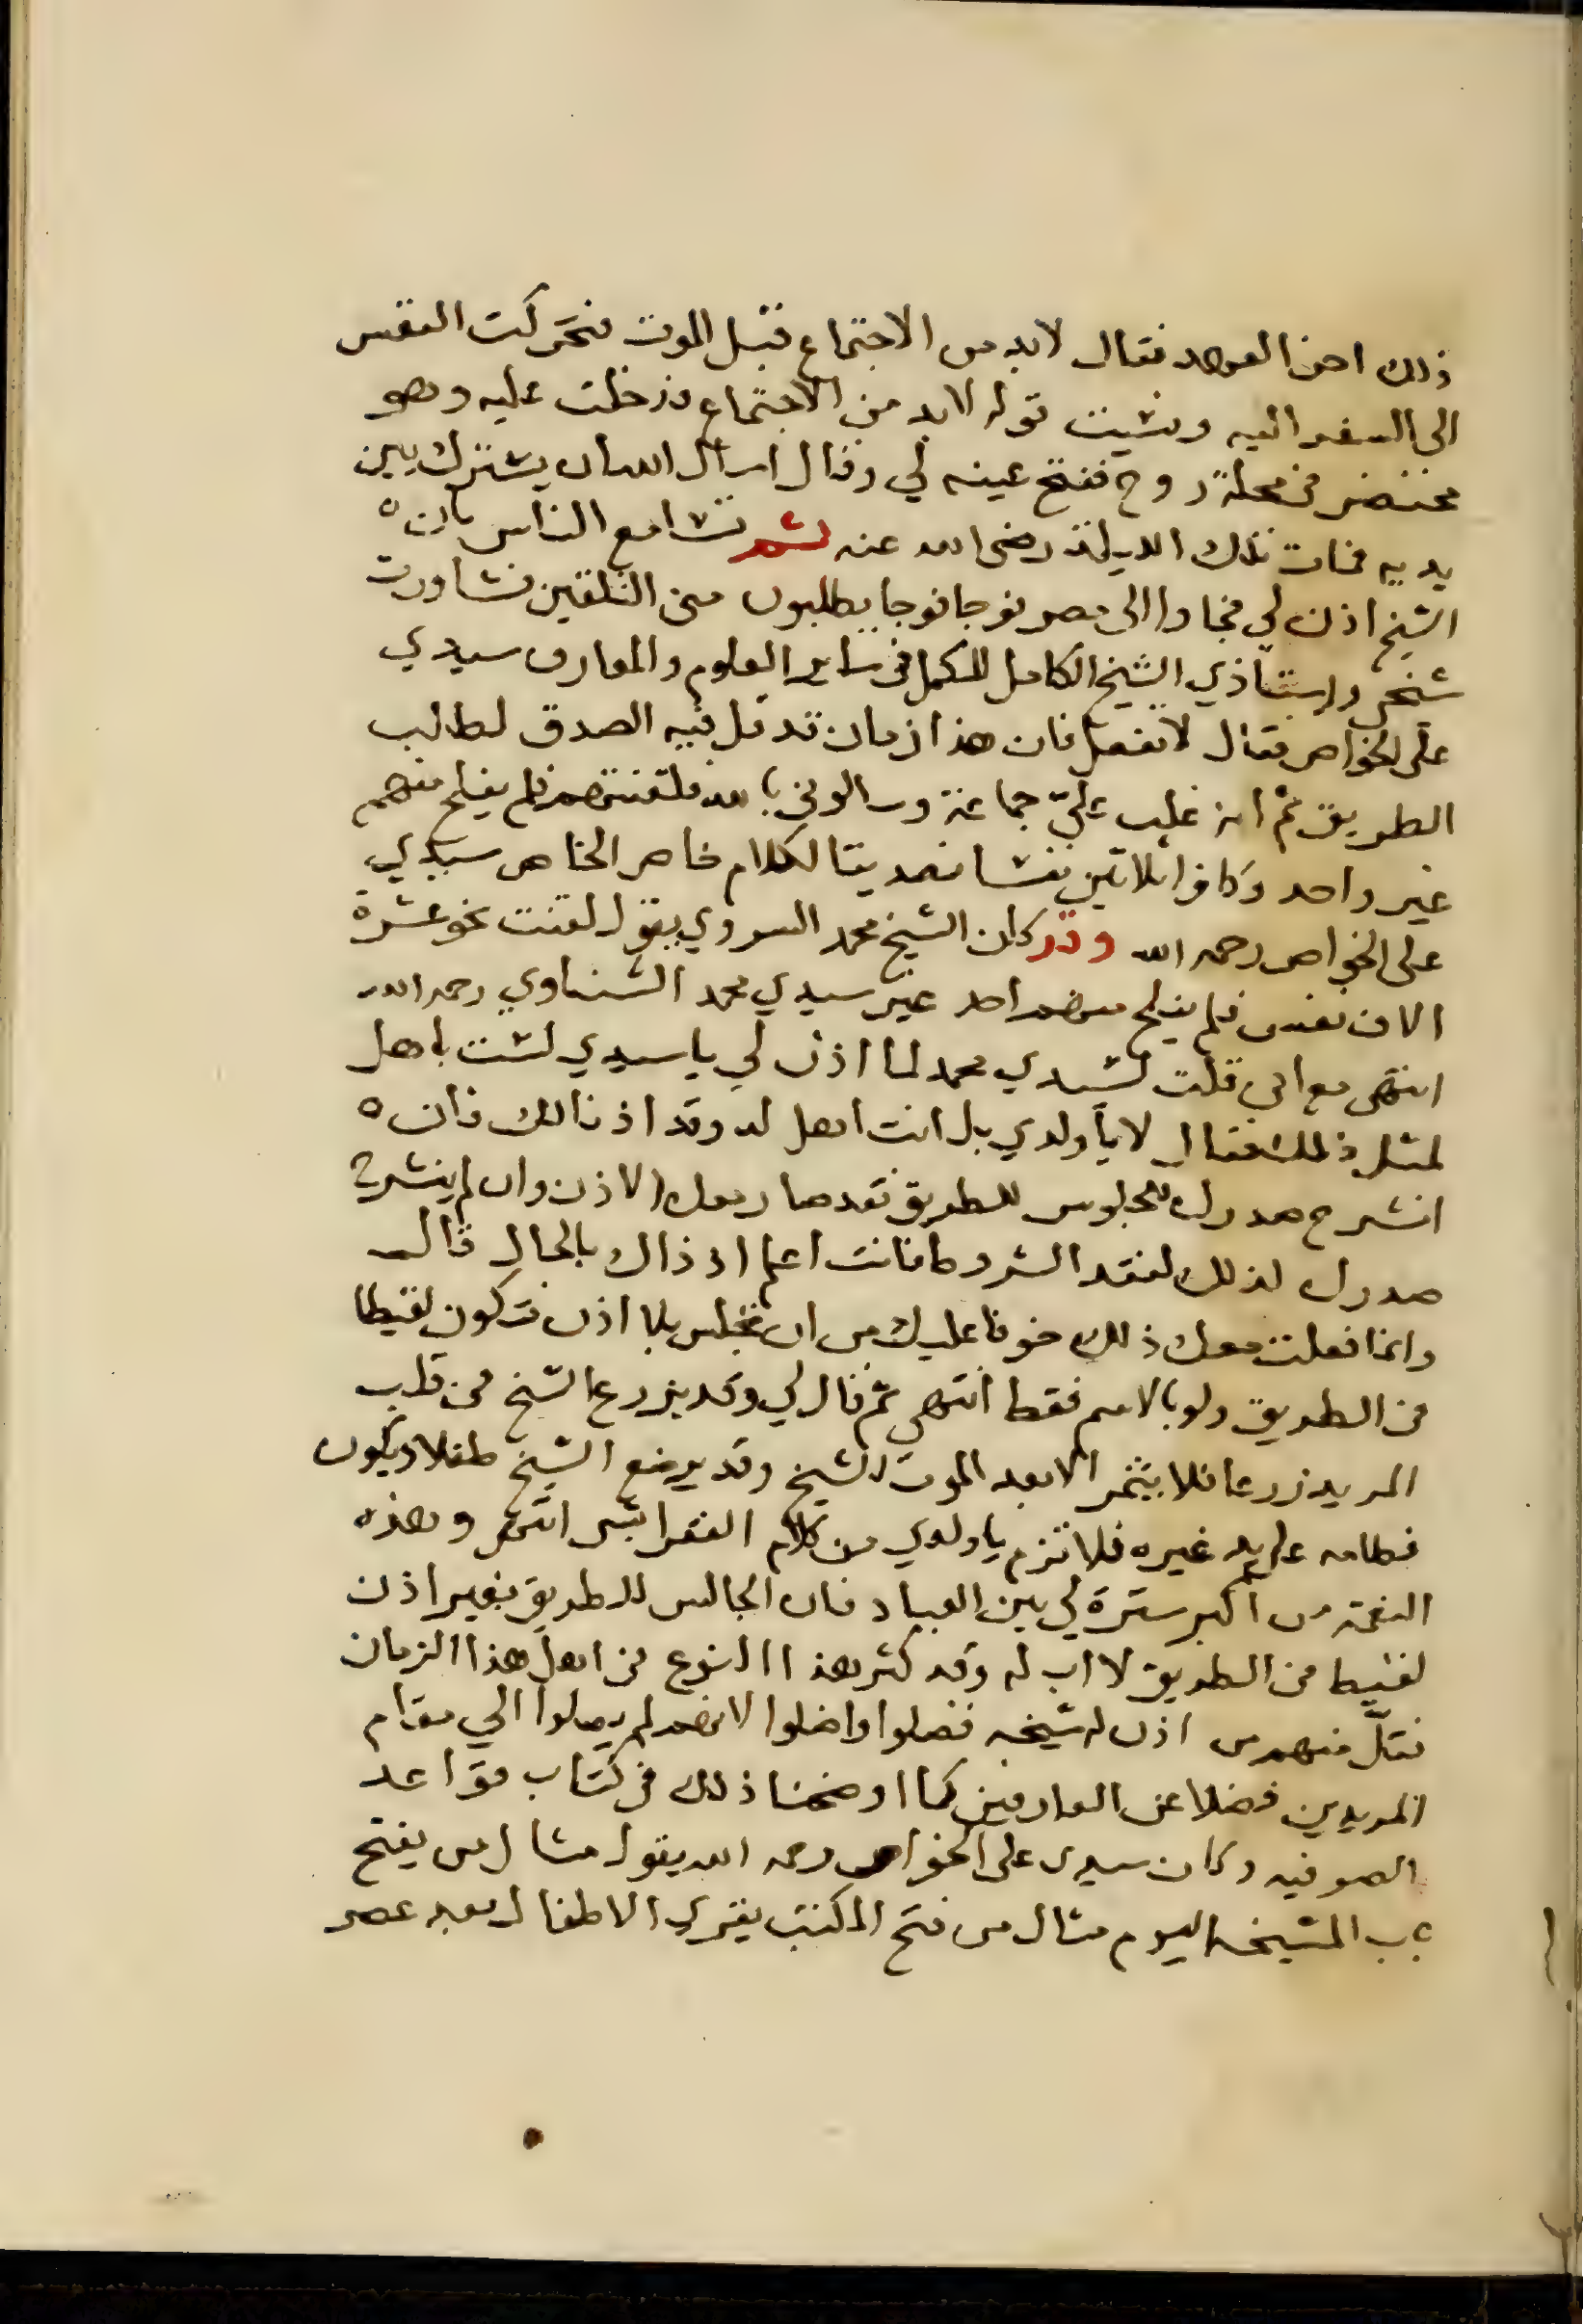 ذلك اخر العهد فقال لابد من الاجتماع قبل الموت فتحركت النفس
الى السفر اليه ونسيت قوله لابد من الاجتماع فدخلت عليه وهو
محتضر في محلة روح ففتح عينه لي وقال اسأل الله ان يشترك بين
يديه فمات تلك الليلة رضي الله عنه ثم تسامع الناس بان
الشيخ اذن لي فجاوا الى مصر فوجا فوجا يطلبون مني التلقين فشاورت
شيخي واستاذي الشيخ الكامل المكمل في ساير العلوم والمعارف سيدي
على الخواص فقال لا تفعل فان هذا زمان قد قل فيه الصدق لطالب
الطريق ثم انه غلب علي جماعة وسالوني بالله فلقنتهم فلم يفلح منهم
غير واحد وكانوا ثلاثين نفسا تصديقا لكلام خاص الخاص سيدي
على الخواص رحمه الله وقد كان الشيخ محمد السروي يقول لقنت نحو عشرة
الاف نفس فلم يفلح منهم احد غير سيدي محمد الشناوي رحمه الله
انتهى مع اني قلت لسيدي محمد لما اذن لي يا سيدي لست باهل
لمثل ذلك فقال لا يا ولدي بل انت اهل له وقد اذنا لك فان
انشرح صدرك للجلوس للطريق فقد صار معك الاذن وان لم ينشرح
صدرك لذلك لفقد الشروط فانت اعلم اذ ذاك بالحال قال
وانما فعلت معك ذلك خوفا عليك من ان تجلس بلا اذن فتكون لقيطا
في الطريق ولو بالاسم فقط انتهى ثم قال لي وقد يزرع الشيخ في قلب
المريد زرعا فلا يثمر الا بعد الموت الشيخ وقد يرضع الشيخ طفلا ويكون
فطامه على يد غيره فلا تزم يا ولدي من كلام الفقرا بشى انتهى وهذه
النعمة من اكبر سترة لي بين العباد فان الجالس للطريق بغير اذن
لقيط في الطريق لا اب له وقد كثر هذا النوع في اهل هذا الزمان
فقل منهم من اذن له شيخه فضلوا واضلوا لانهم لم يصلوا الي مقام
المريدين فضلا عن العارفين كما اوضحنا ذلك في كتاب قواعد
الصوفيه وكان سيدى على الخواص رحمه الله يقول مثال من يفتح
باب المشيخه اليوم مثال من فتح المكتب يقري الاطفال بعد عصر